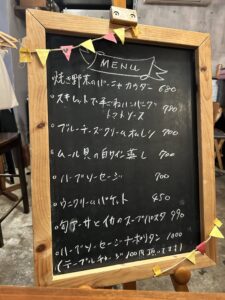 MENU
焼き野菜のバーニャカウダー 680
・スキレットで手ごねハンバーグ 980
トマトソース
・ブルーチーズクリームオムレツ 700
・ムール貝の白ワイン蒸し 700
・ハーブソーセージ 700
・ウニクリームバケット 450
・旬ギーサとイカのスープパスタ 990
・ハーブソーセージナポリタン 1000
(テーブルチャージ100円頂いてます)